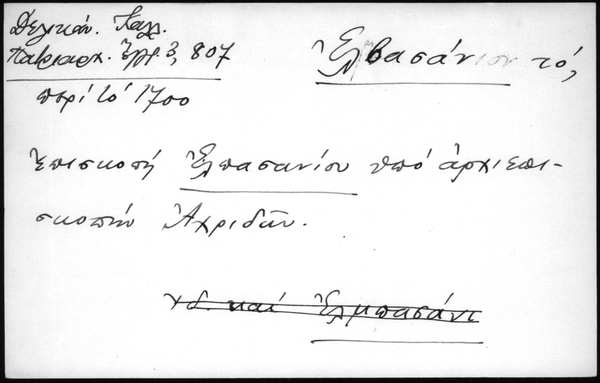 Δελικάν. Καλ.
Πατριαρχ. Ἔγγρ. 3, 807
περί τό 1700
Ἐλβασάνιον τό,
Ἐπισκοπή Ἐλπασανίου ὑπό ἀρχιεπι-
σκοπήν Ἀχριδῶν.
ἰδ. καί Ἐλμπασάνι